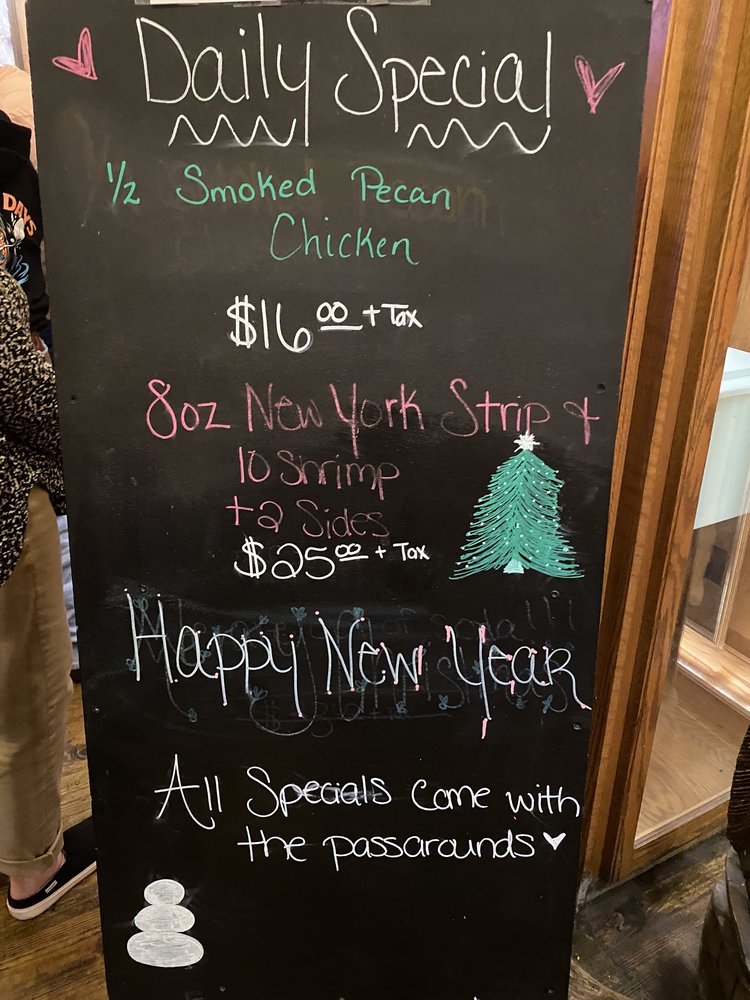 Daily Special
1/2 Smoked Pecan
Chicken
$16.00 + Tax
8oz New York Strip +
10 Shrimp
+2 Sides
$25.00 + Tax
Happy New Year
All Specials come with
the passarounds
DAYS